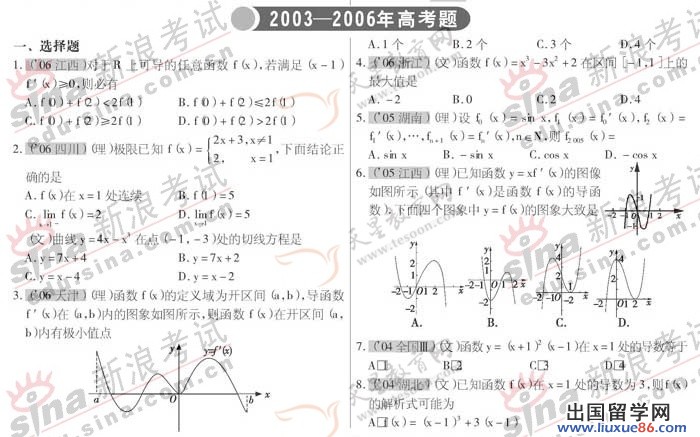 2003—2006年高考题
一、选择题
1. ('06江西)对于R上可导的任意函数f(x),若满足(x-1)
f′(x)≥0,则必有
A. f(0)+f(2)<2f(1) B. f(0)+f(2)≤2f(1)
C. f(0)+f(2)≥2f(1) D. f(0)+f(2)>2f(1)
2. ('06四川)(理)极限已知f(x)={2x+3,x≠1
2, x=1,下面结论正
确的是
A. f(x)在x=1处连续 B. f(1)=5
C. lim f(x)=2 D. lim f(x)=5
(文)曲线y=4x-x³在点(-1,-3)处的切线方程是
A. y=7x+4 B. y=7x+2
C. y=x-4 D. y=x-2
3. ('06天津)(理)函数f(x)的定义域为开区间(a,b),导函数
f′(x)在(a,b)内的图象如图所示,则函数f(x)在开区间(a,
b)内有极小值点
y y=f′(x)
a O b x
A. 1个 B. 2个 C. 3个 D. 4个
4. ('06浙江)(文)函数f(x)=x³-3x²+2在区间[-1,1]上的
最大值是
A. -2 B. 0 C. 2 D. 4
5. ('05湖南)(理)设f₀(x)=sin x,f₁(x)=f₀′(x),f₂(x)=
f₁′(x),…,fₙ₊₁(x)=fₙ′(x),n∈N,则f₂₀₀₅(x)=
A. sin x B. -sin x C. cos x D. -cos x
6. ('05江西)(理)已知函数y=xf′(x)的图像
如图所示(其中f′(x)是函数f(x)的导函
数).下面四个图象中y=f(x)的图象大致是
A. B. C. D.
7. ('04全国Ⅲ)(文)函数y=(x+1)²(x-1)在x=1处的导数等于
A□1 B□2 C□3 D□4
8. ('04湖北)(文)已知函数f(x)在x=1处的导数为3,则f(x)
的解析式可能为
A□f(x)=(x-1)³+3(x-1)
sina 新浪考试
edu.sina.com.cn
天星教育网
www.tesoon.com
出国留学网
www.liuxue86.com